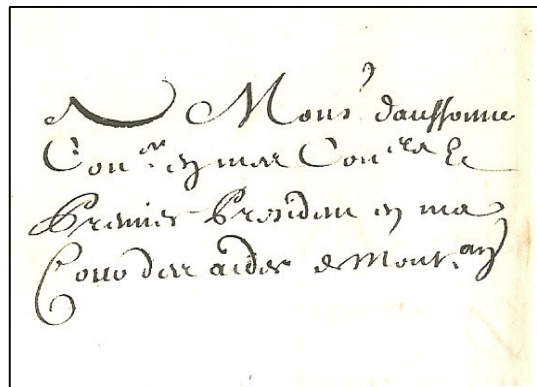 A Monsʳ daussonne
Conᵉʳ en mes Conᵉˡˢ &
Premier President en ma
Cour des aides de Montᵃⁿ